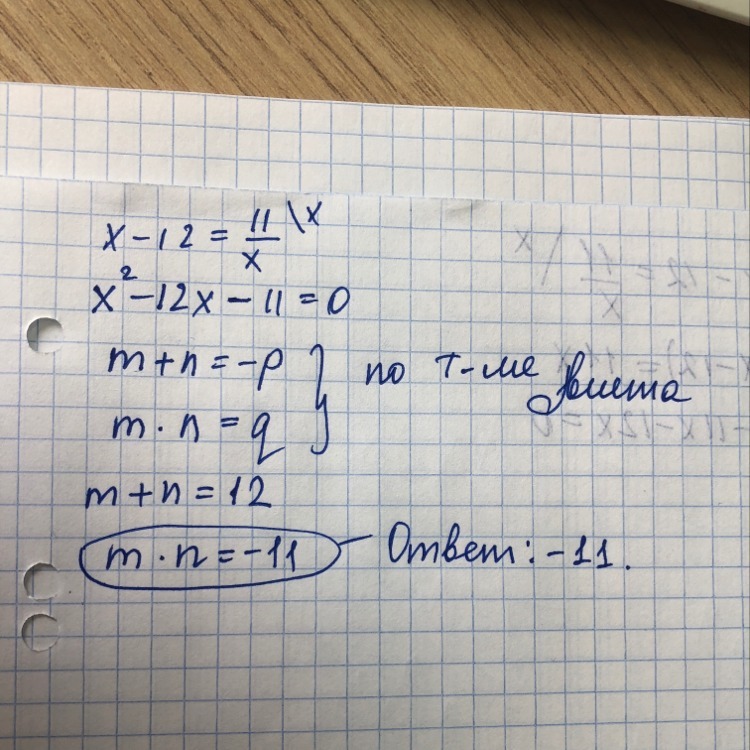 x - 12 = 11/x \x
x² - 12x - 11 = 0
m + n = -p } по т-ме Виета
m · n = q
m + n = 12
m · n = -11 - Ответ: -11.